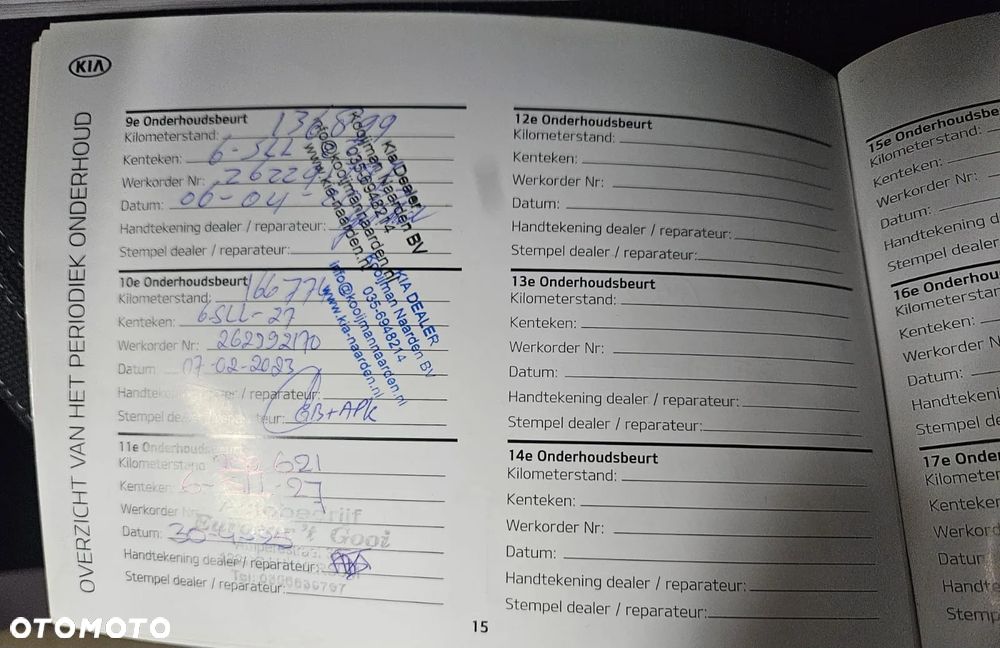 KIA
OVERZICHT VAN HET PERIODIEK ONDERHOUD
9e Onderhoudsbeurt
Kilometerstand: 136899
Kenteken: 6-SLL
Werkorder Nr:
Datum: 06-04-
Handtekening dealer / reparateur:
Stempel dealer / reparateur:
Kia Dealer
Kooijman Naarden BV
035-6948214
info@kooijmannaarden.nl
www.kia-naarden.nl
10e Onderhoudsbeurt
Kilometerstand:
Kenteken: 6-SLL-27
Werkorder Nr: 262992170
Datum: 07-02-2023
Handtekening dealer / reparateur:
Stempel dealer / reparateur: GB+APK
KIA DEALER
Kooijman Naarden BV
035-6948214
info@kooijmannaarden.nl
www.kia-naarden.nl
11e Onderhoudsbeurt
Kilometerstand 621
Kenteken 27
Werkorder Nr
Datum:
Handtekening dealer / reparateur:
Stempel dealer / reparateur:
't Gooi
12e Onderhoudsbeurt
Kilometerstand:
Kenteken:
Werkorder Nr:
Datum:
Handtekening dealer / reparateur:
Stempel dealer / reparateur:
13e Onderhoudsbeurt
Kilometerstand:
Kenteken:
Werkorder Nr:
Datum:
Handtekening dealer / reparateur:
Stempel dealer / reparateur:
14e Onderhoudsbeurt
Kilometerstand:
Kenteken:
Werkorder Nr:
Datum:
Handtekening dealer / reparateur:
Stempel dealer / reparateur:
15
15e Onderhoudsbe
Kilometerstand:
Kenteken:
Werkorder Nr:
Datum:
Handtekening dealer
Stempel dealer
16e Onderhou
Kilometerstan
Kenteken:
Werkorder N
Datum:
Handtekeni
Stempel de
17e Onder
Kilometer
Kenteke
Werkord
Datum
Handte
Stemp
OTOMOTO